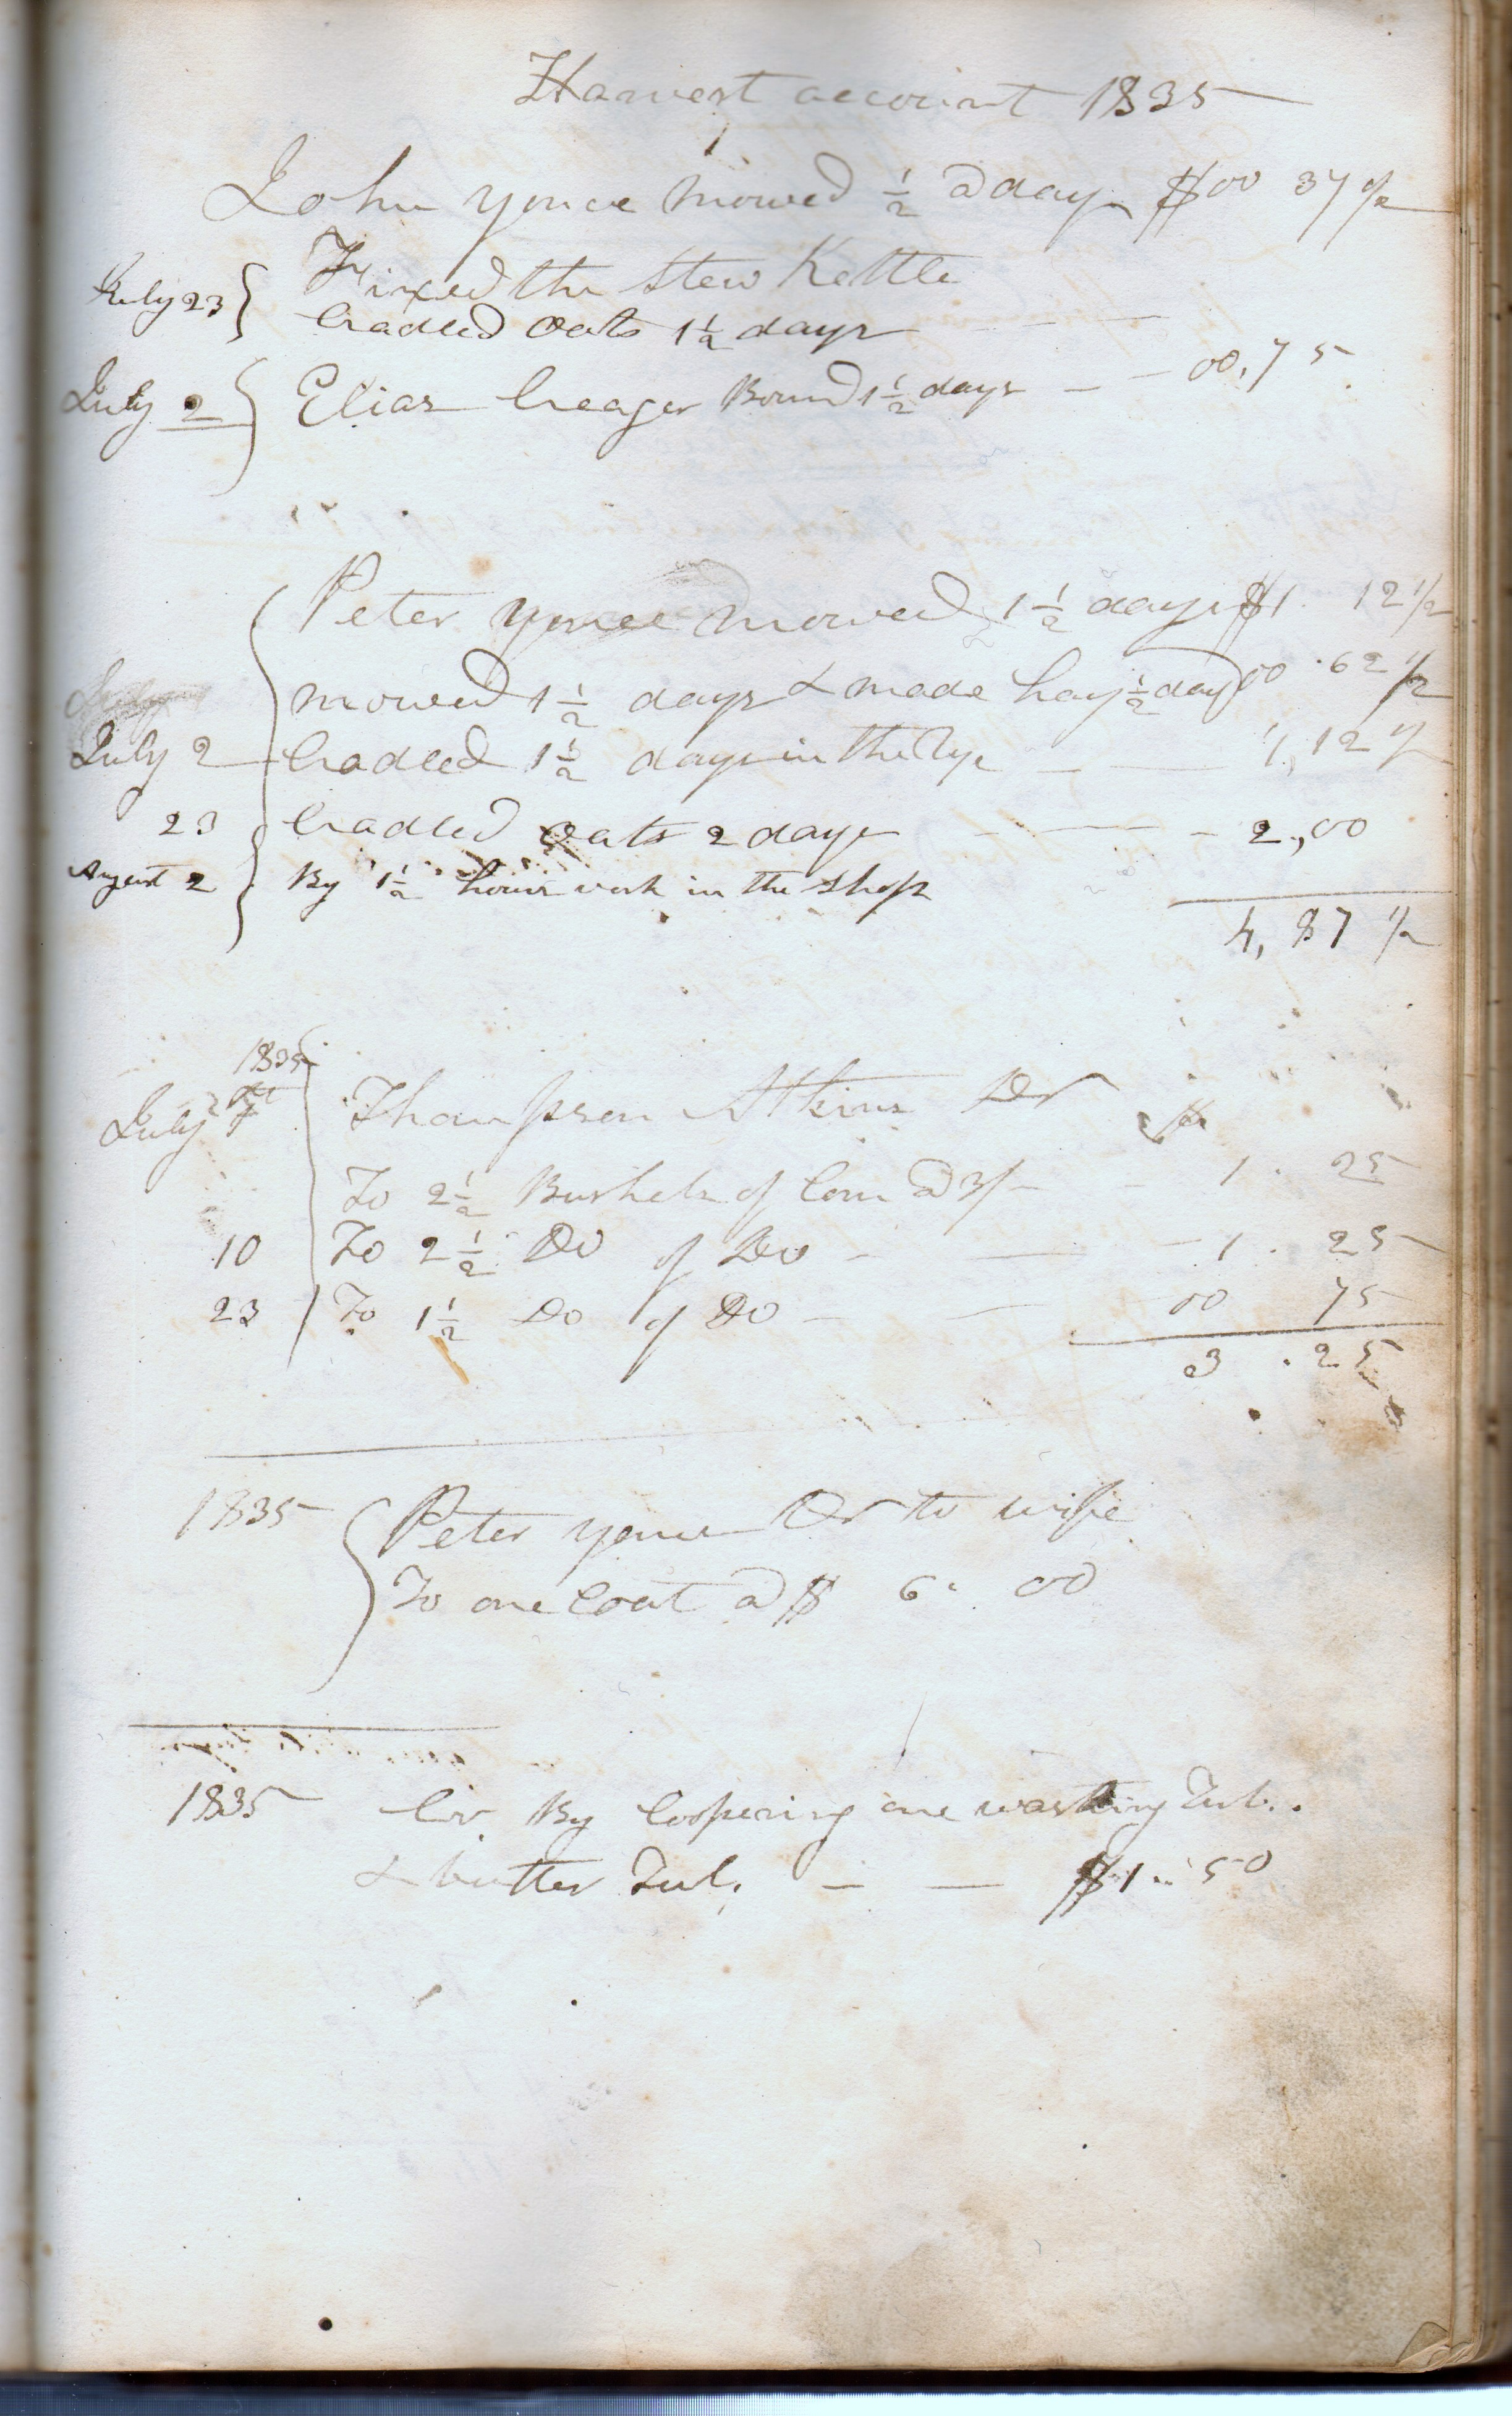 Harvest account 1835
John Yonce mowed 1/2 a day $00 37 1/2
Fixed the Stew Kettle
July 23 Cradled Oats 1 1/2 days
July 2 Elias Creager Bound 1 1/2 days 00,75
Peter Yonce mowed 1 1/2 days $1. 12 1/2
mowed 1 1/2 days & made hay 1/2 day 00.62 1/2
July
July 2 Cradled 1 1/2 days in the Rye 1,12 1/2
23 Cradled oats 2 days 2,00
August 2 By 1 1/2 hours work in the shop
4,87 1/2
1835
July 7 Thompson Atkins Dr $
To 2 1/2 Bushels of Corn @ 3/- 1. 25
10 To 2 1/2 Do of Do 1. 25
23 To 1 1/2 Do of Do 00 75
3.25
1835 Peter Yonce Dr to wife
To one Coat a $ 6. 00
1835 Cr By Coopering one washing Tub.
& butter Tub. $1.50